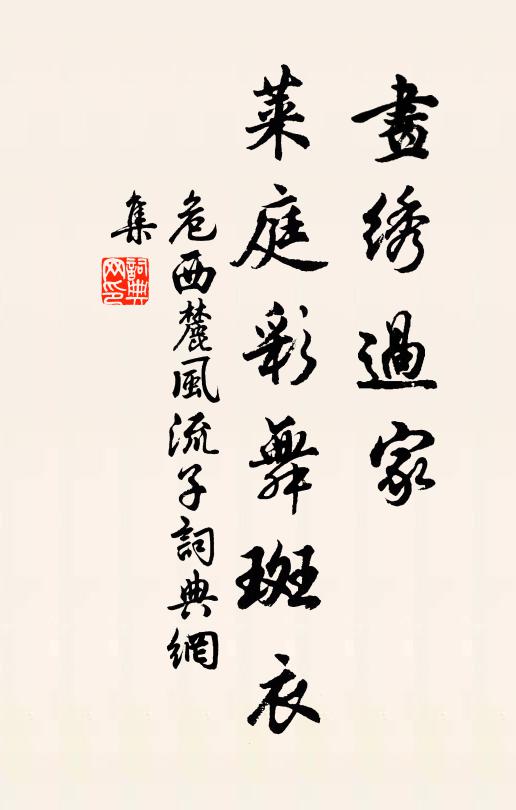 晝綉過家
萊庭彩舞斑衣
危西麓風流子詞典網
集
詞典网印